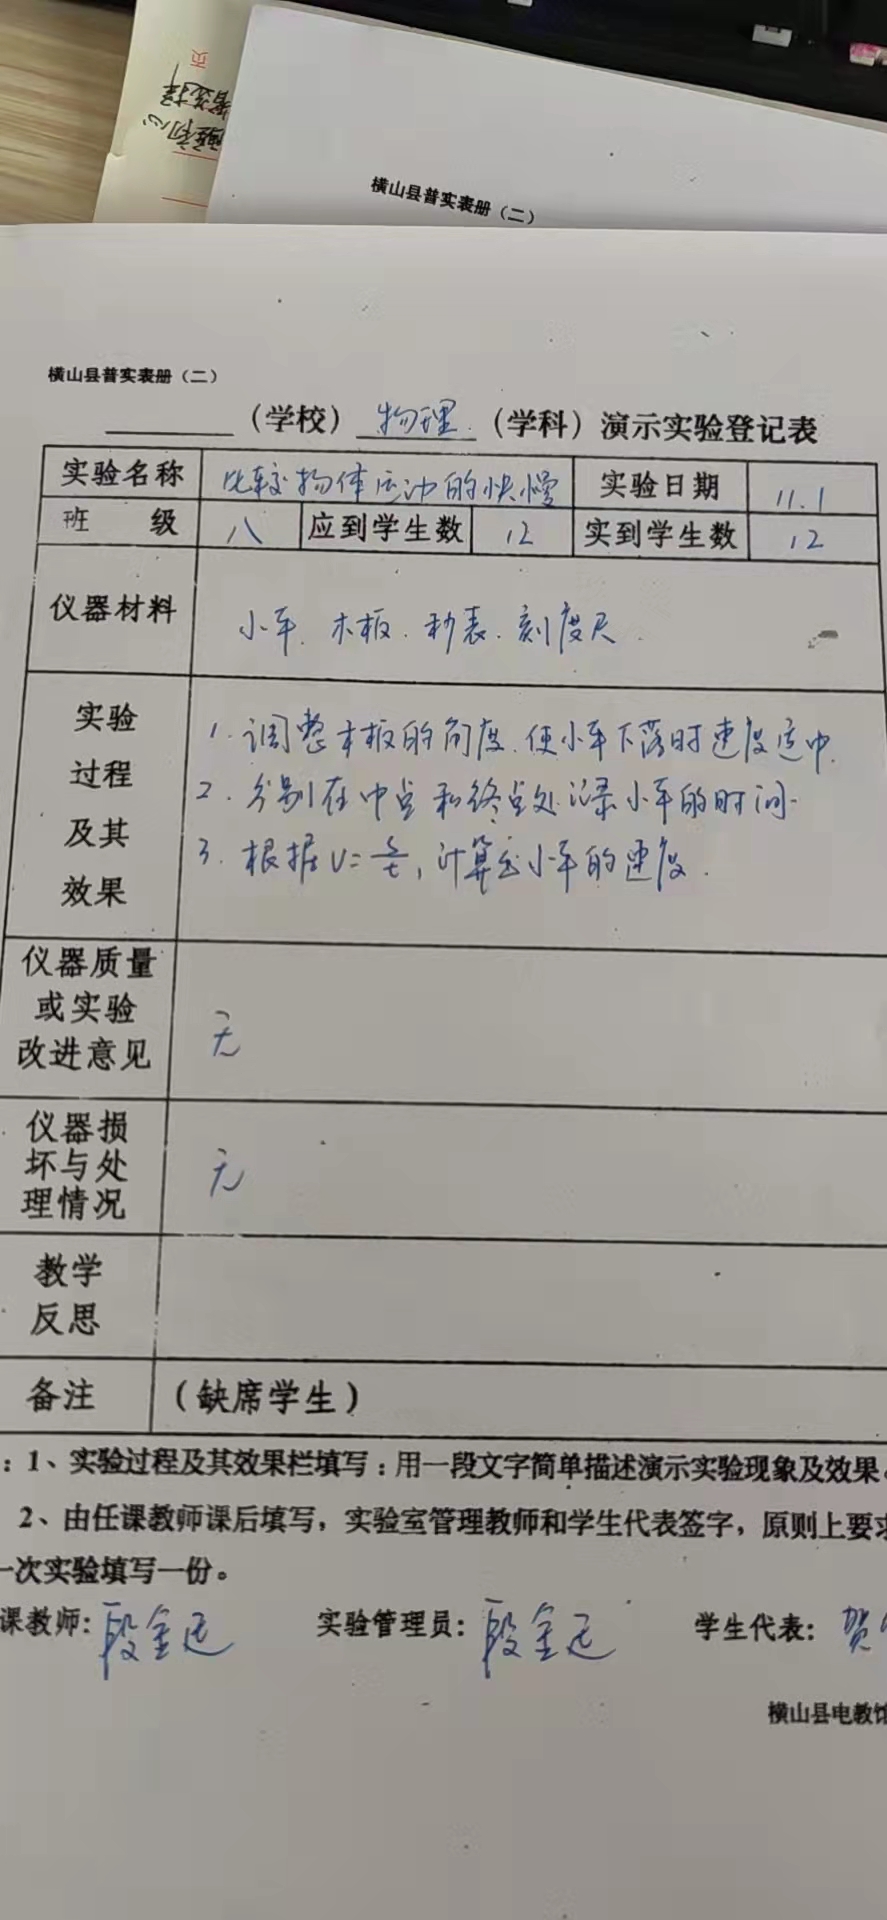 页
横山县普实表册（二）
横山县普实表册（二）
（学校）物理（学科）演示实验登记表
实验名称 比较物体运动的快慢 实验日期 11.1
班 级 八 应到学生数 12 实到学生数 12
仪器材料 小车.木板.秒表.刻度尺.
实验
过程
及其
效果
1.调整木板的角度.使小车下落时速度适中.
2.分别在中点和终点处记录小车的时间.
3.根据v=s/t,计算出小车的速度.
仪器质量
或实验
改进意见
无
仪器损
坏与处
理情况
无
教学
反思
备注 （缺席学生）
：1、实验过程及其效果栏填写：用一段文字简单描述演示实验现象及效果。
2、由任课教师课后填写，实验室管理教师和学生代表签字，原则上要求
一次实验填写一份。
课教师：段金 实验管理员：段金 学生代表：贺
横山县电教馆